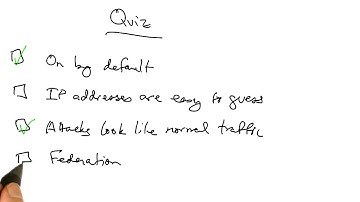 Quiz
On by default
IP addresses are easy to guess
Attacks look like normal traffic
Federation